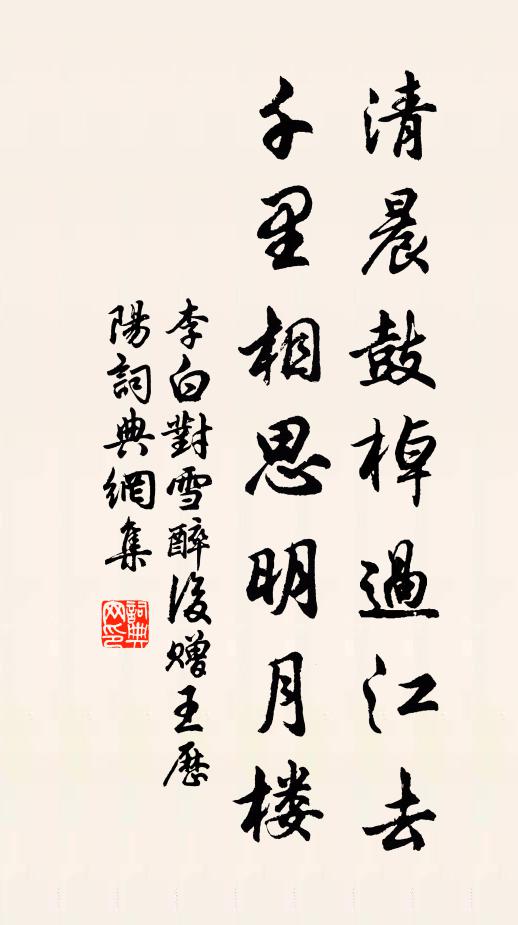 清晨鼓棹過江去
千里相思明月楼
李白對雪醉後赠王歷
陽詞典網集
詞典网印